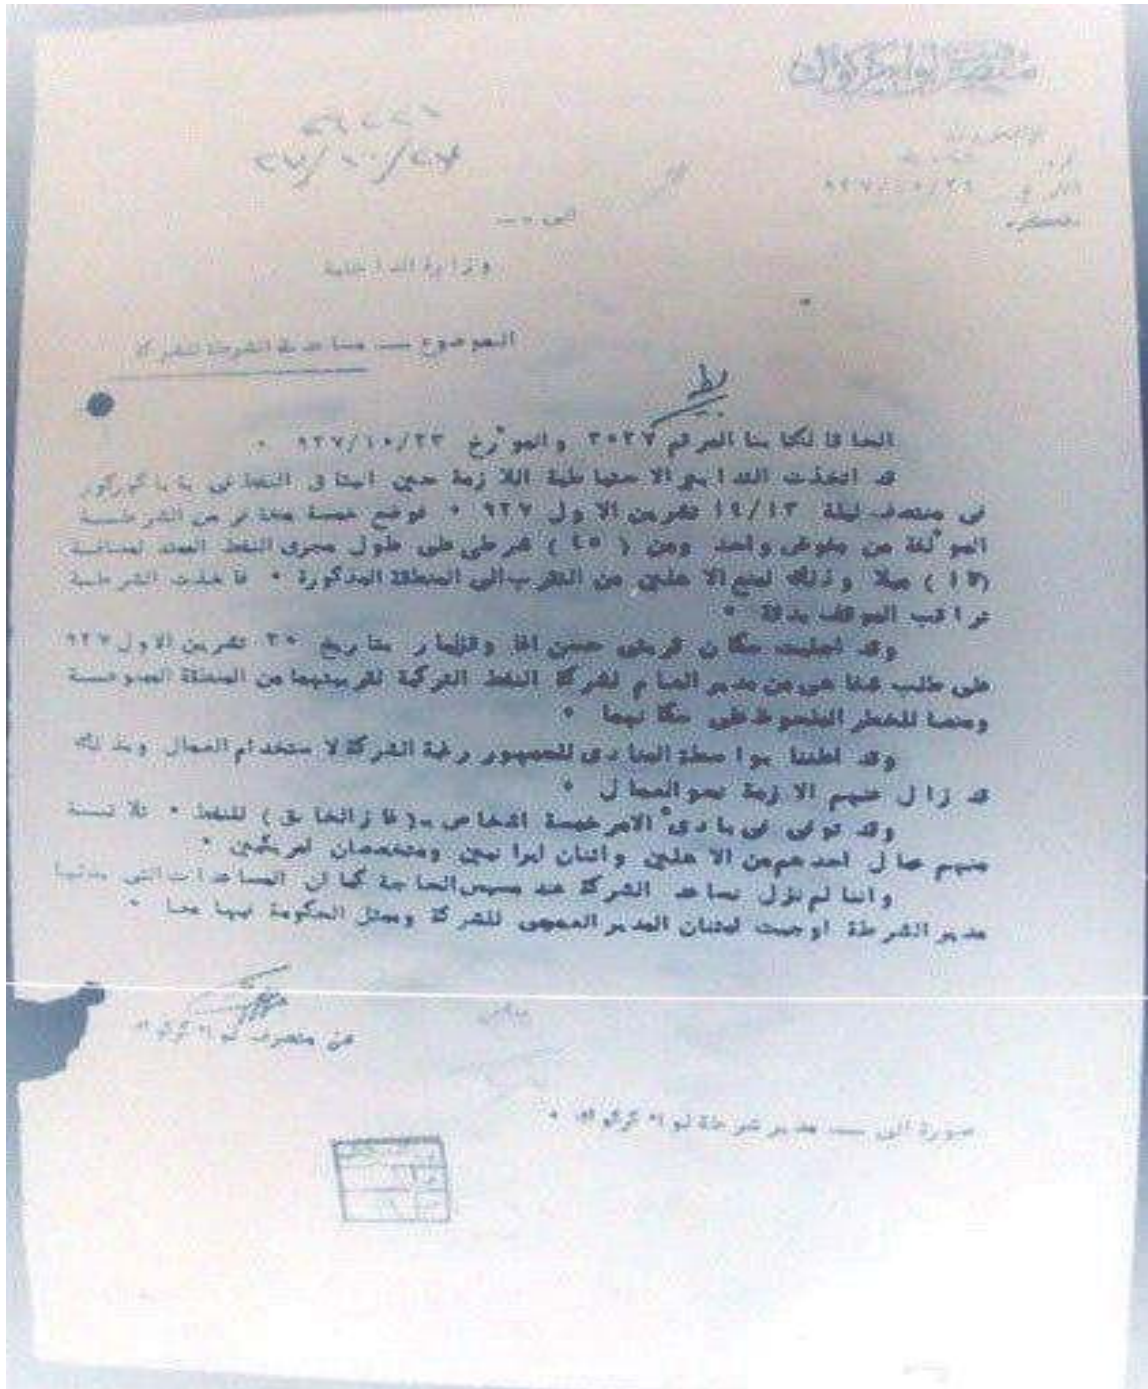 متصرفية لواء كركوك
التاريخ ٩٢٧/١٠/٢٦
٢٧/١٠/٢٧
الى --
وزارة الداخلية
الموضوع — مساعدة الشرطة للشركة
الحاقا لكتابنا المرقم ٣٠٢٧ والمؤرخ ٩٢٧/١٠/٢٣ ٠
قد اتخذت التدابير الاحتياطية اللازمة حين انبثاق النفط في باباكوركور
في منتصف ليلة ١٤/١٣ تشرين الاول ٩٢٧ ٠ فوضع خمسة مخافر من الشرطة
المؤلفة من مفوض واحد ومن ( ٤٥ ) شرطي على طول مجرى النفط الممتد لمسافة
( ١٥ ) ميلا وذلك لمنع الاهلين من التقرب الى المنطقة المذكورة ٠ فاخذت الشرطة
تراقب الموقف بدقة ٠
وقد اجليت سكان قريتي حسن اغا وقزليار بتاريخ ٢٠ تشرين الاول ٩٢٧
على طلب شفاهي من مدير العام لشركة النفط التركية لقربيتهما من المنطقة
ومنعا للخطر الملحوظ على سكانهما ٠
وقد اعلنا بواسطة المنادى للجمهور رغبة الشركة لاستخدام العمال وبذلك
قد زال عنهم الازمة نحو العمال ٠
وقد توفى في بادىء الامر خمسة اشخاص بـ(غاز الخانق) للنفط ٠ ثلاثة
منهم عمال احدهم من الاهلين واثنان ايرانيين ومتخصصان امريكيين ٠
واننا لم نزل نساعد الشركة عند مسيس الحاجة كما ان المساعدات التي بذلها
مدير الشرطة اوجبت امتنان المدير العمومى للشركة وممثل الحكومة فيها معا ٠
عن متصرف لواء كركوك
صورة الى — مدير شرطة لواء كركوك ٠